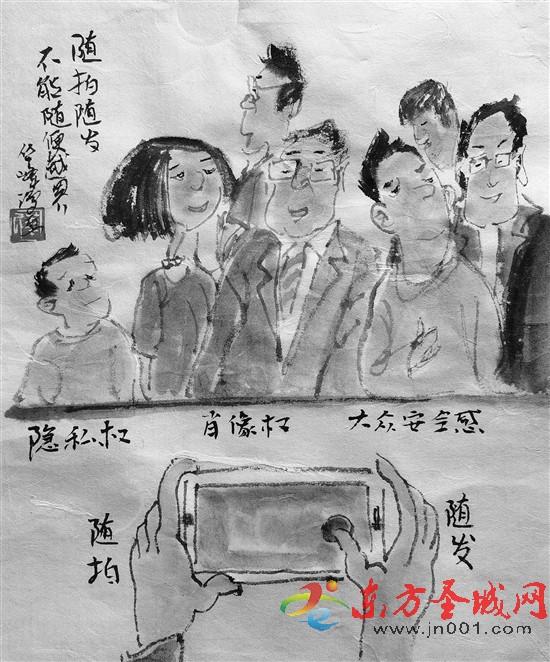 随拍随发
不能随便越界
隐私权
肖像权
大众安全感
随拍
随发
东方圣城网
www.jn001.com